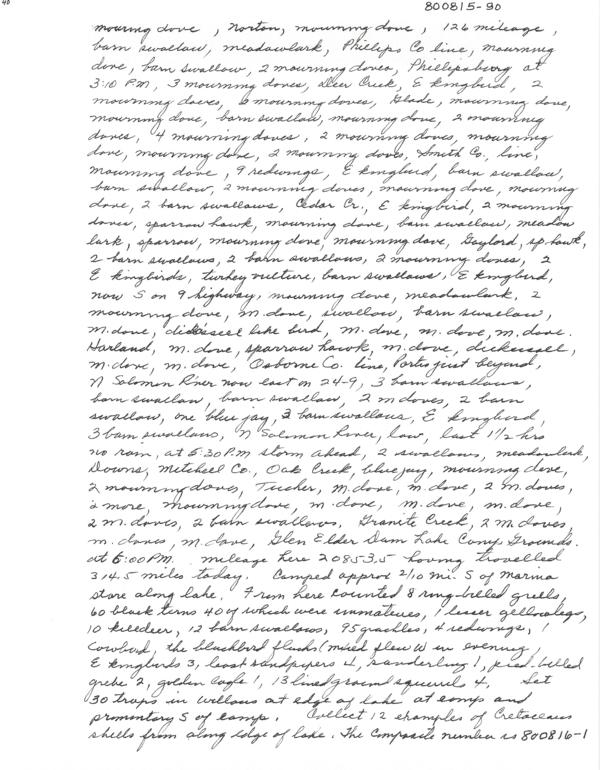 40
800815-90
mouring dove, Norton, mourning dove, 126 mileage,
barn swallow, meadowlark, Phillips Co line, mourning
dove, barn swallow, 2 mourning doves, Phillipsburg at
3:10 P.M., 3 mourning doves, Deer Creek, E kingbird, 2
mourning doves, mourning doves, Glade, mourning dove,
mourning dove, barn swallow, mourning dove, 2 mourning
doves, 4 mourning doves, 2 mourning doves, mourning
dove, mourning dove, 2 mourning doves, Smith Co., line,
mourning dove, 9 redwings, E kingbird, barn swallow,
barn swallow, 2 mourning doves, mourning dove, mourning
dove, 2 barn swallows, Cedar Cr., E kingbird, 2 mourning
doves, sparrow hawk, mourning dove, barn swallow, meadow
lark, sparrow, mourning dove, mourning dove, Gaylord, sp. hawk,
2 barn swallows, 2 barn swallows, 2 mourning doves, 2
E kingbirds, turkey vulture, barn swallows, E kingbird,
now S on 9 highway, mourning dove, meadowlark, 2
mourning dove, m. dove, swallow, barn swallow,
m. dove, dickcissel like bird, m. dove, m. dove, m. dove.
Harland, m. dove, sparrow hawk, m. dove, dickcissel,
m. dove, m. dove, Osborne Co. line, Portis just beyond,
N Solomon River now east on 24-9, 3 barn swallows,
barn swallow, barn swallow, 2 m doves, 2 barn
swallow, one blue jay, 3 barn swallows, E kingbird,
3 barn swallows, N Solomon River, low, last 1 1/2 hrs
no rain, at 5:30 P.M. storm ahead, 2 swallows, meadowlark,
Downs, Mitchell Co., Oak Creek, blue jay, mourning dove,
2 mourning doves, Tucker, m. dove, m. dove, 2 m. doves,
2 more, mourning dove, m. dove, m. dove, m. dove,
2 m. doves, 2 barn swallows, Granite Creek, 2 m. doves,
m. doves, m. dove, Glen Elder Dam Lake Camp Grounds.
at 6:00 P.M. mileage here 20853.5 having travelled
314.5 miles today. Camped approx 2/10 mi. S of Marina
store along lake. From here counted 8 ring-billed gulls,
60 black terns 40 of which were immatures, 1 lesser yellowlegs,
10 killdeer, 12 barn swallows, 95 grackles, 4 redwings, 1
Cowbird, the blackbird flocks (mixed flew W in evening,
E kingbirds 3, least sandpipers 4, sanderling 1, pied-billed
grebe 2, golden eagle 1, 13 lined ground squirrels 4. Set
30 traps in willows at edge of lake at camp and
promontory S of camp. Collect 12 examples of Cretaceous
shells from along edge of lake. The Composite number is 800816-1